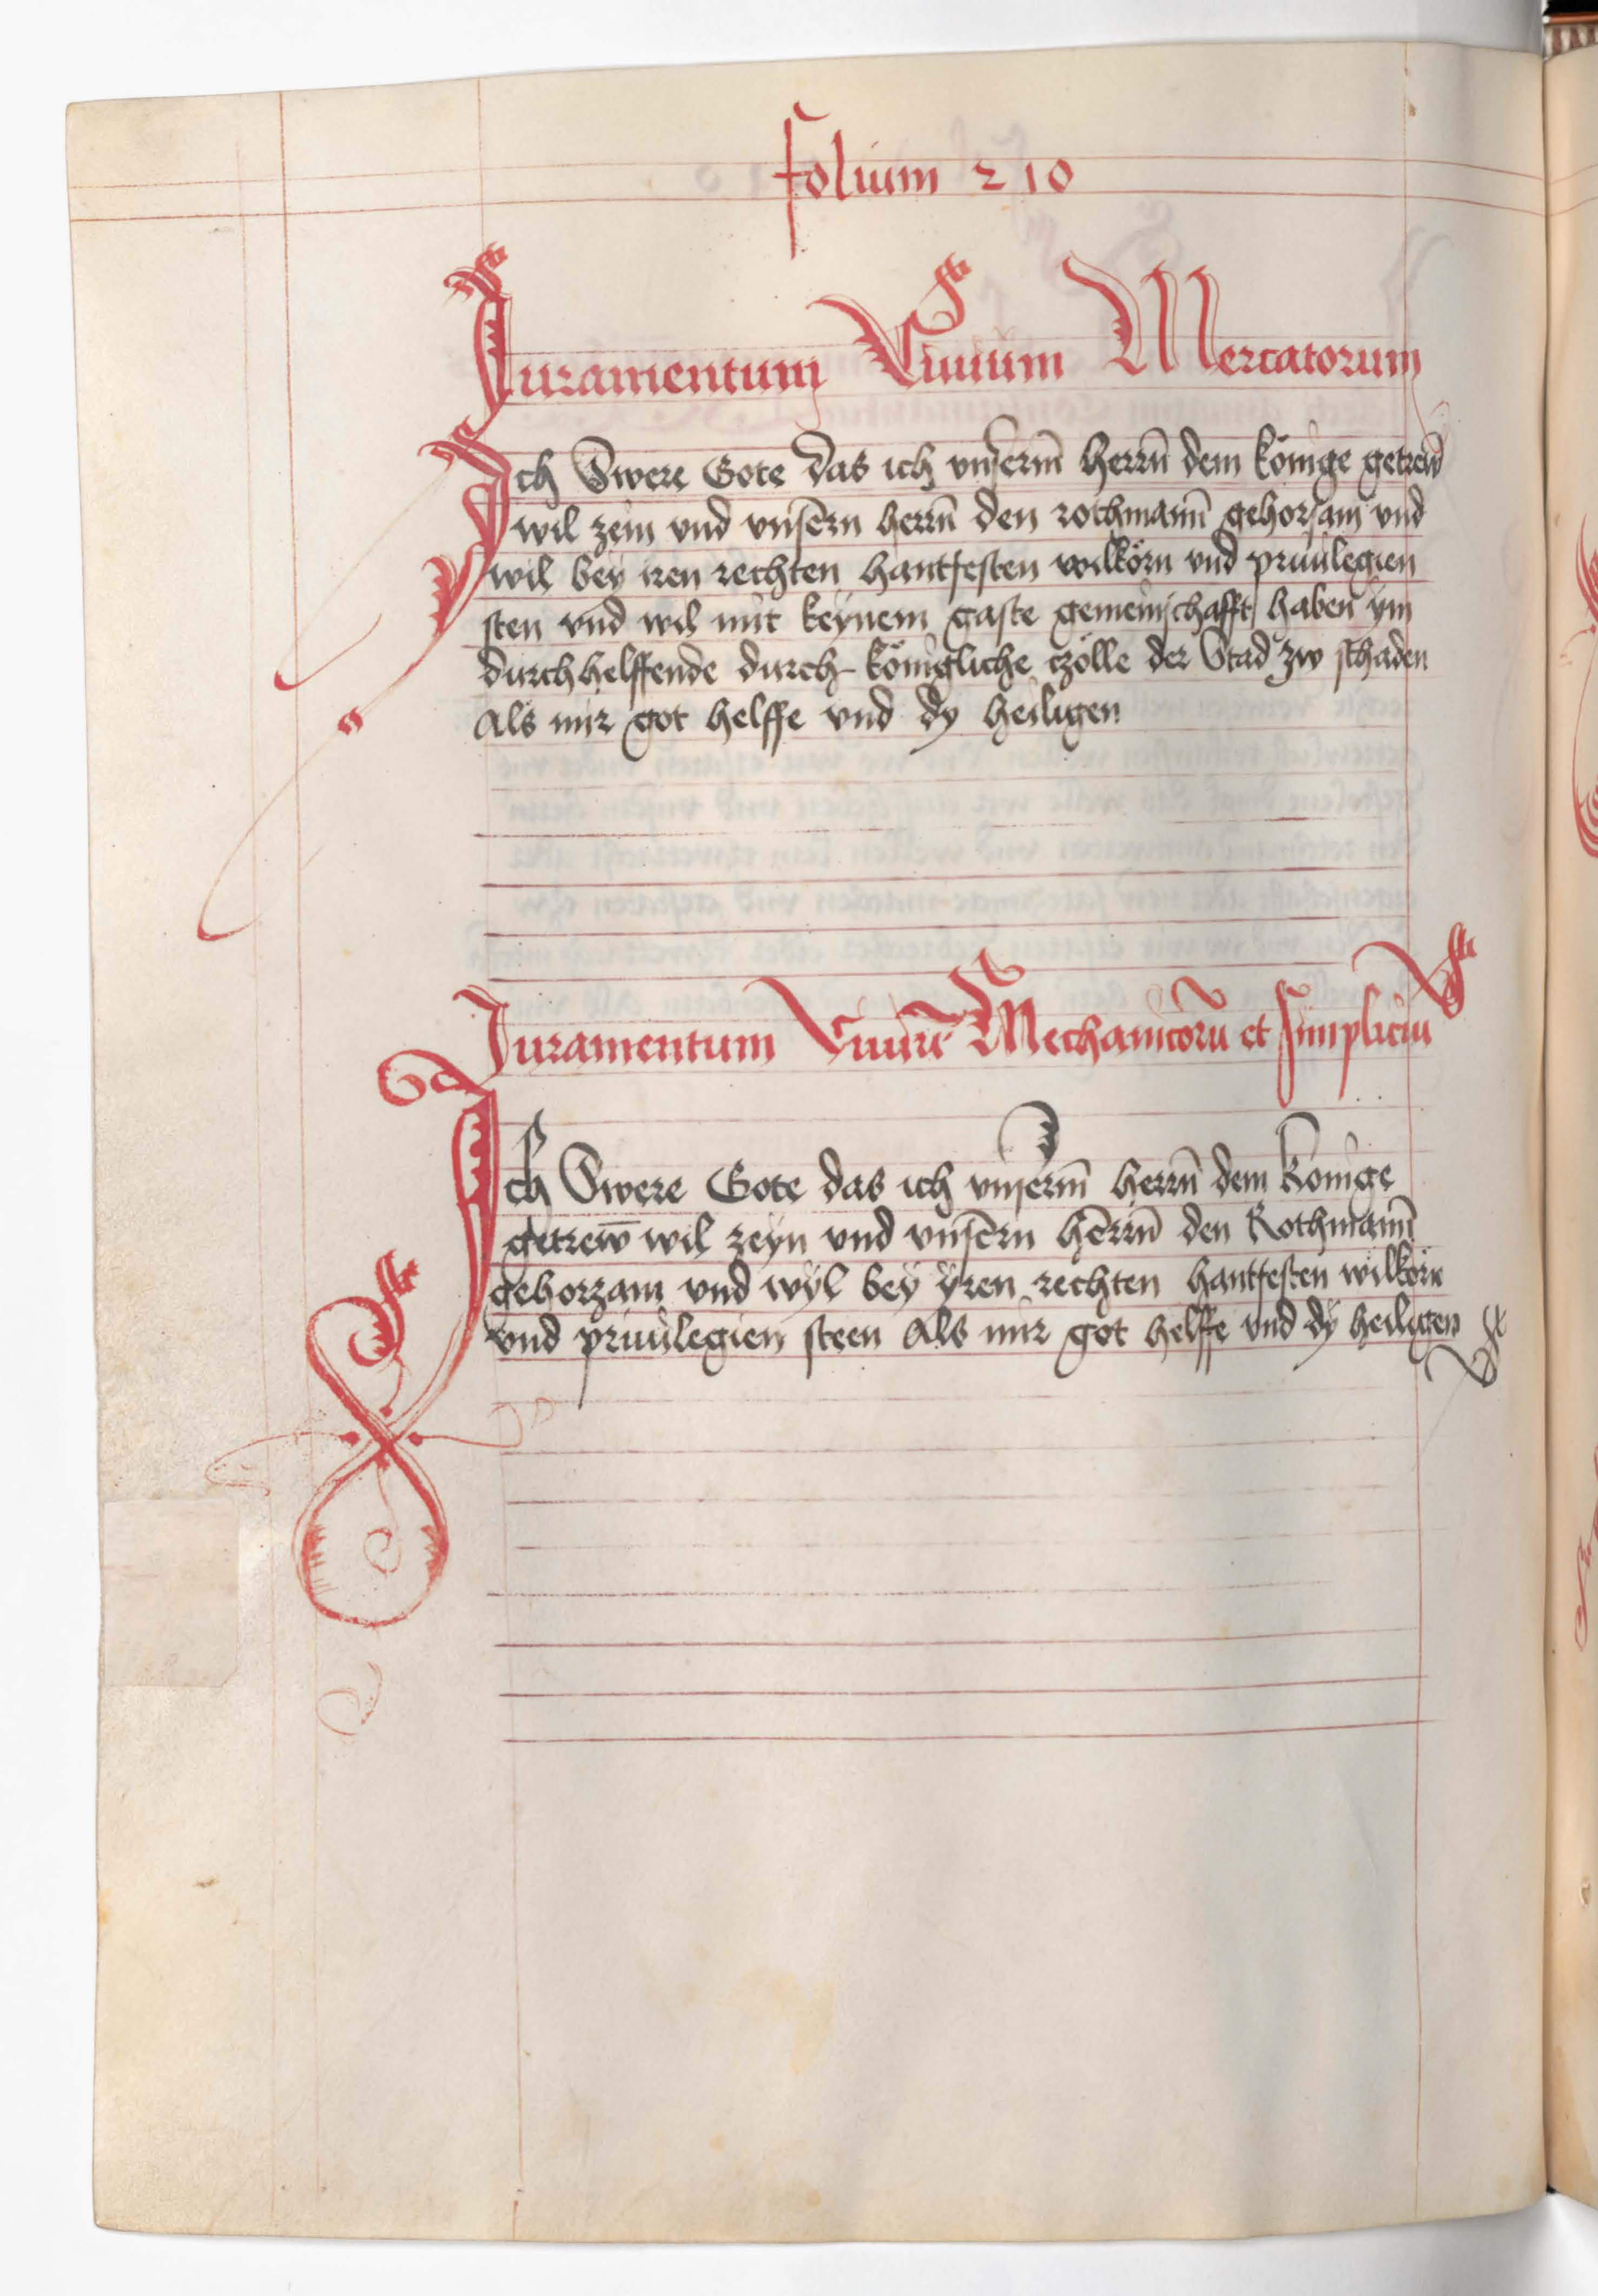 folium 210
Juramentum Ciuium Mercatorum
Ich Swere Gote das ich vnserm̄ herrn̄ dem könige getrew
wil zein vnd vnsern herrn̄ den rothmann̄ gehorsam vnd
wil bey iren rechten hantfesten wilkörn vnd priuilegien
sten vnd wil mit keynem gaste gemeinschafft haben ym
durchhelffende durch königliche czölle der Stad zw schaden
Als mir got helffe vnd dy heiligen
Juramentum Ciuiū Mechanicorū et simpliciū
Ich Swere Gote das ich vnserm̄ herrn̄ dem Konige
getrew̄ wil zeyn vnd vnsern herrn̄ den Rothmann̄
gehorzam vnd wyl bey yren rechten hantfesten wilkörn
vnd priuilegien steen Als mir got helffe vnd dy heiligen